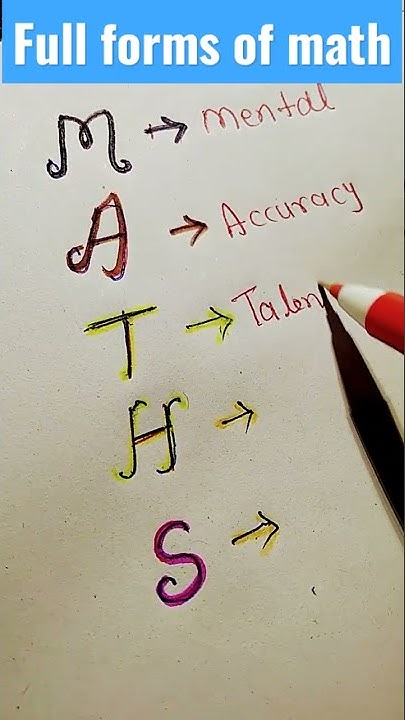 Full forms of math
M → Mental
A → Accuracy
T → Talen
H →
S →